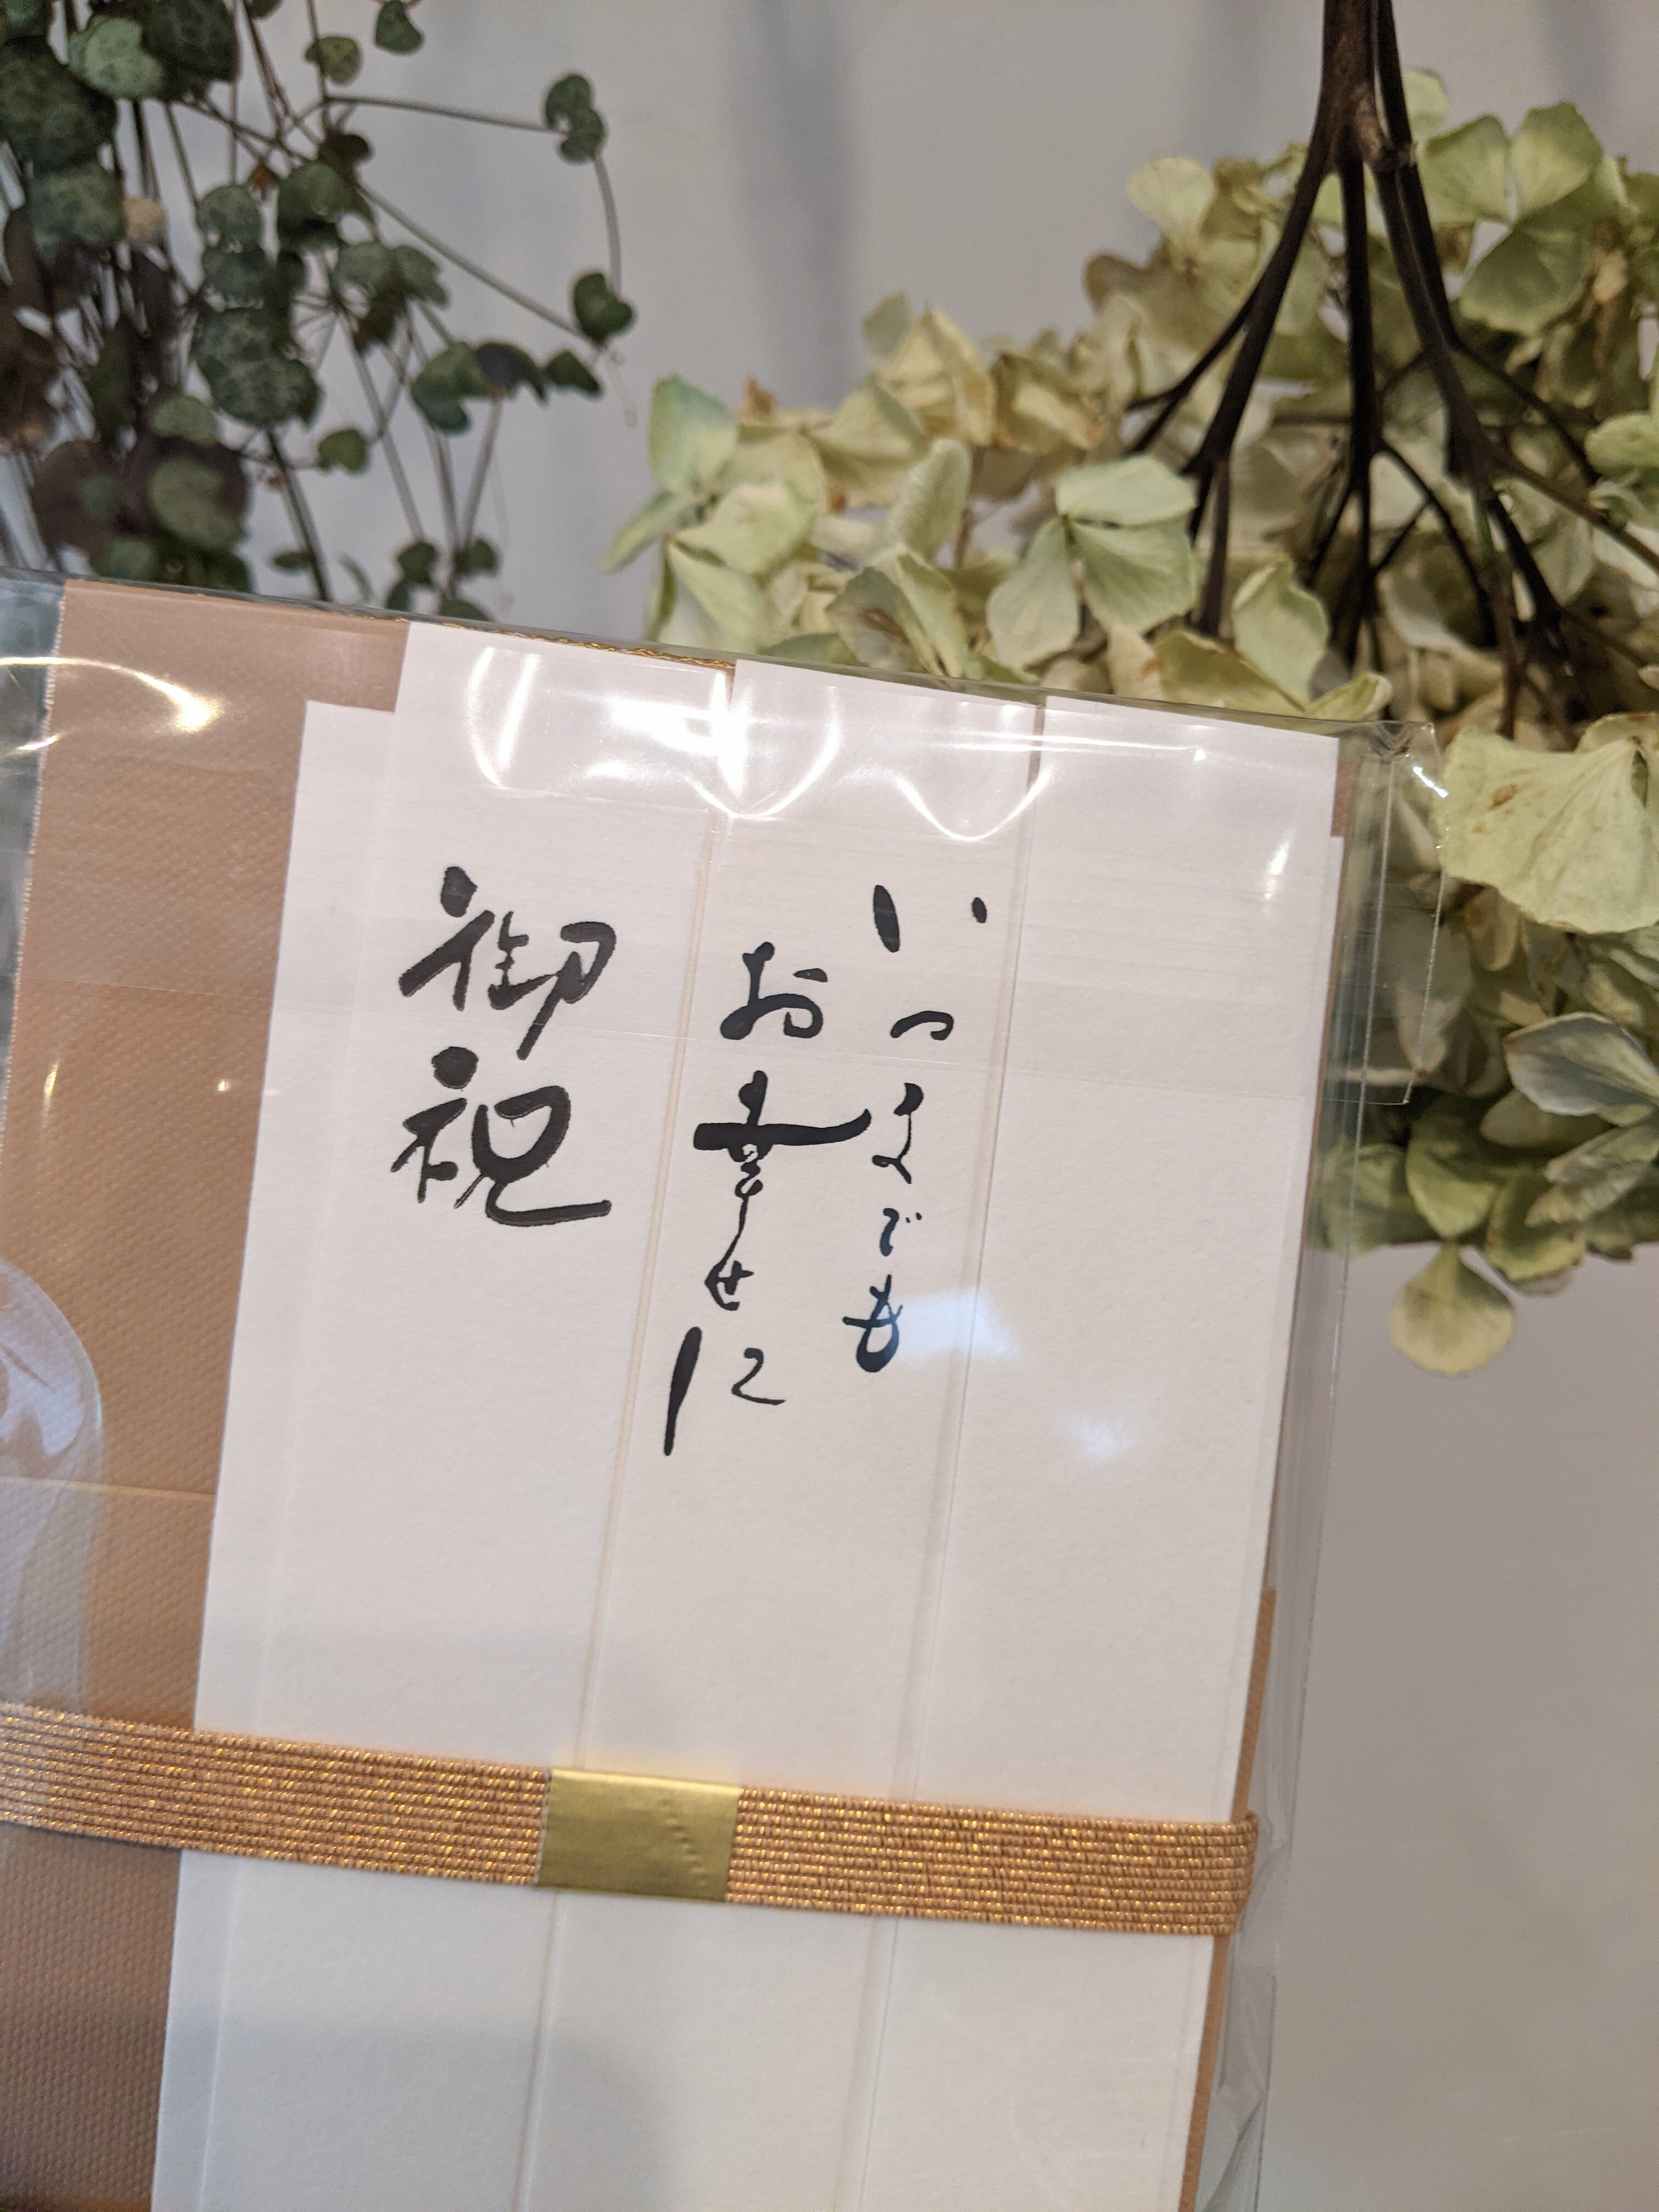 いつまでも
お幸せに
御祝